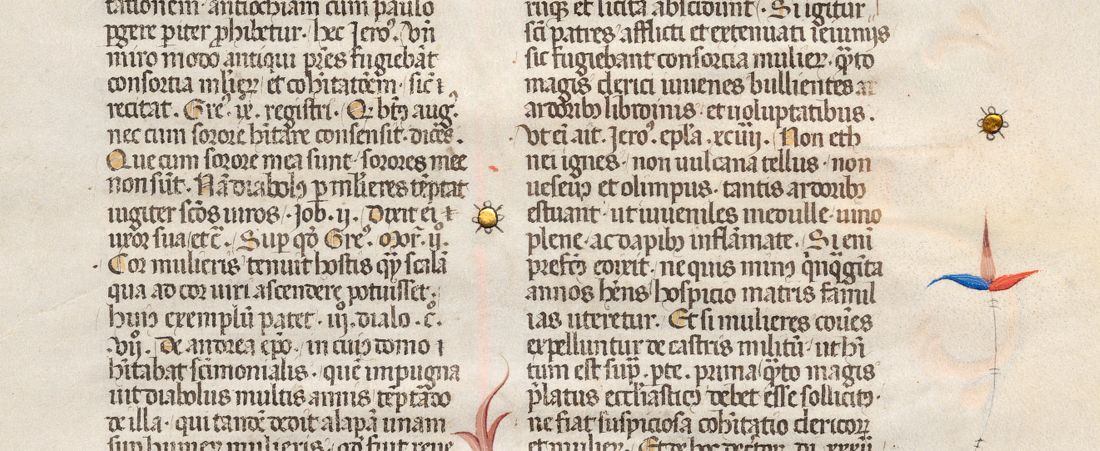 tationem antiochiam cum paulo
ꝑgere ꝑiter ꝓhibetur. hec Jero⁹. Vn̄
miro modo antiqui pr̄es fugiebāt
consortia mlieꝝ et cohītatōem. sic̄
recitat. Gre⁹. ix. registri. Q. bt̄us aug⁹.
nec cum sorore hītare consensit. dicēs.
Que cum sorore mea sunt. sorores mee
non sūt. Nā diabolꝰ ꝑ mlieres tēptat
iugiter scōs uiros. Job. ii. Dixit ei
uxor sua etc̄. Sup qd̄ Gre⁹. Mor. ii.
Cor mulieris tenuit hostis qͣꝫ scalā
qua ad cor uiri ascendere potuisset.
huiꝰ exemplū patet. iii. dialo. c̄.
.vii. De andrea ep̄o. in cuiꝰ domo
hītabat sc̄imonialis. quē impugna
uit diabolus multis annis tēptādo
de illa. qui tandē dedit alapā unam
suꝑ humeꝝ mulieris. qd̄ fuit reue
rūꝫ et licita abscidunt. Si igitur
sc̄i patres afflicti et extenuati ieiuniis
sic fugiebant consorcia mulieꝝ. qͣto
magis clerici iuuenes bullientes
ardoribꝰ libidinis. et uoluptatibus.
Vt ei. ait. Jero⁹. epl̄a. xciiij. Non eth
nei ignes. non uulcana tellus. non
ueseuꝰ et olimpus. tantis ardoribꝰ
estuant. ut iuueniles medulle. uino
plene. ac dapibꝰ inflāmate. Si eni
prefectꝰ edixit. ne quis minꝰ qͥnqͣgīta
annos hēns hospicio matris famil
ias uteretur. Et si mulieres cōues
expelluntur de castris militū. ut hī
tum est sup̄. pte. prima. qͣto magis
p̄latus eccl̄iasticꝰ debet esse sollicitꝰ.
ne fiat suspiciosa cohītatio clericoꝝ
et mulieꝝ. Et de hoc dec̄tor. di. xxxii